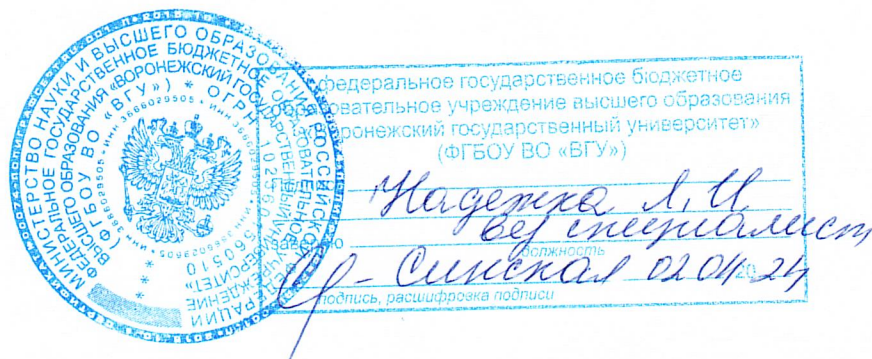 МИНИСТЕРСТВО НАУКИ И ВЫСШЕГО ОБРАЗОВАНИЯ РОССИЙСКОЙ ФЕДЕРАЦИИ
ФЕДЕРАЛЬНОЕ ГОСУДАРСТВЕННОЕ БЮДЖЕТНОЕ ОБРАЗОВАТЕЛЬНОЕ УЧРЕЖДЕНИЕ
ВЫСШЕГО ОБРАЗОВАНИЯ «ВОРОНЕЖСКИЙ ГОСУДАРСТВЕННЫЙ УНИВЕРСИТЕТ»
(ФГБОУ ВО «ВГУ») * ОГРН
федеральное государственное бюджетное
образовательное учреждение высшего образования
«Воронежский государственный университет»
(ФГБОУ ВО «ВГУ»)
Надежка Л. И.
вед специалист
должность
Синская 02 04 20 24
подпись, расшифровка подписи